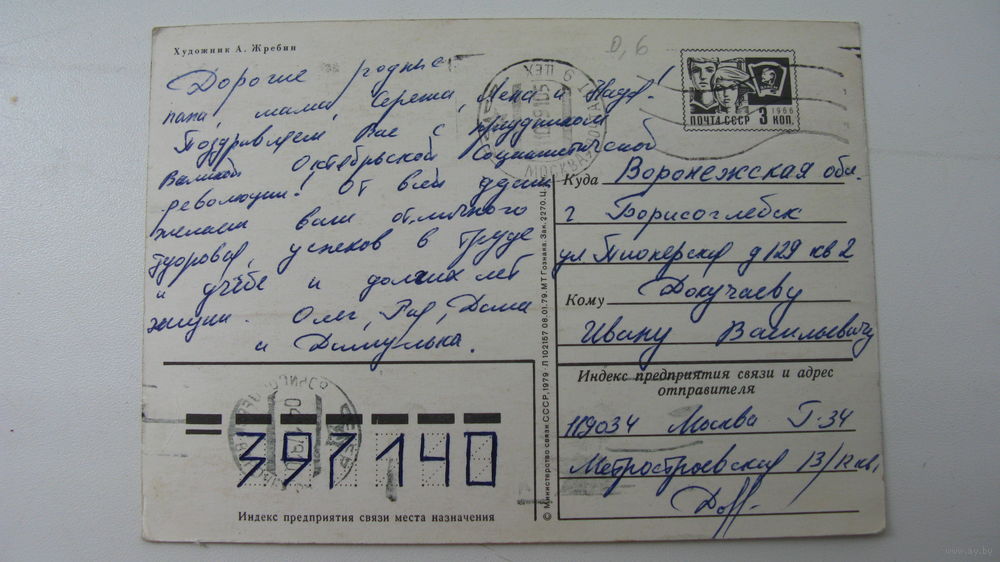 Художник А. Жребин
0,6
Дорогие родные
папа, мама, Сережа, Лена и Надя!
Поздравляем Вас с праздником
Великой Октябрьской Социалистической
революции! От всей души
желаем вам отличного
здоровья, успехов в труде
и учёбе и долгих лет
жизни. Олег, Рая, Дима
и
ПОЧТА СССР 3 КОП.
1966
МОСКВА
Куда Воронежская обл.
г Борисоглебск
ул Пионерская д 129 кв 2
Кому Докучаеву
Ивану Васильевичу
Индекс предприятия связи и адрес
отправителя
119034 Москва Г-34
Метростроевская 13/12 кв,
397140
Индекс предприятия связи места назначения
© Министерство связи СССР, 1979 Л 102157 08.01.79. МТ Гознака. Зак. 2270. Ц.
www.ay.by